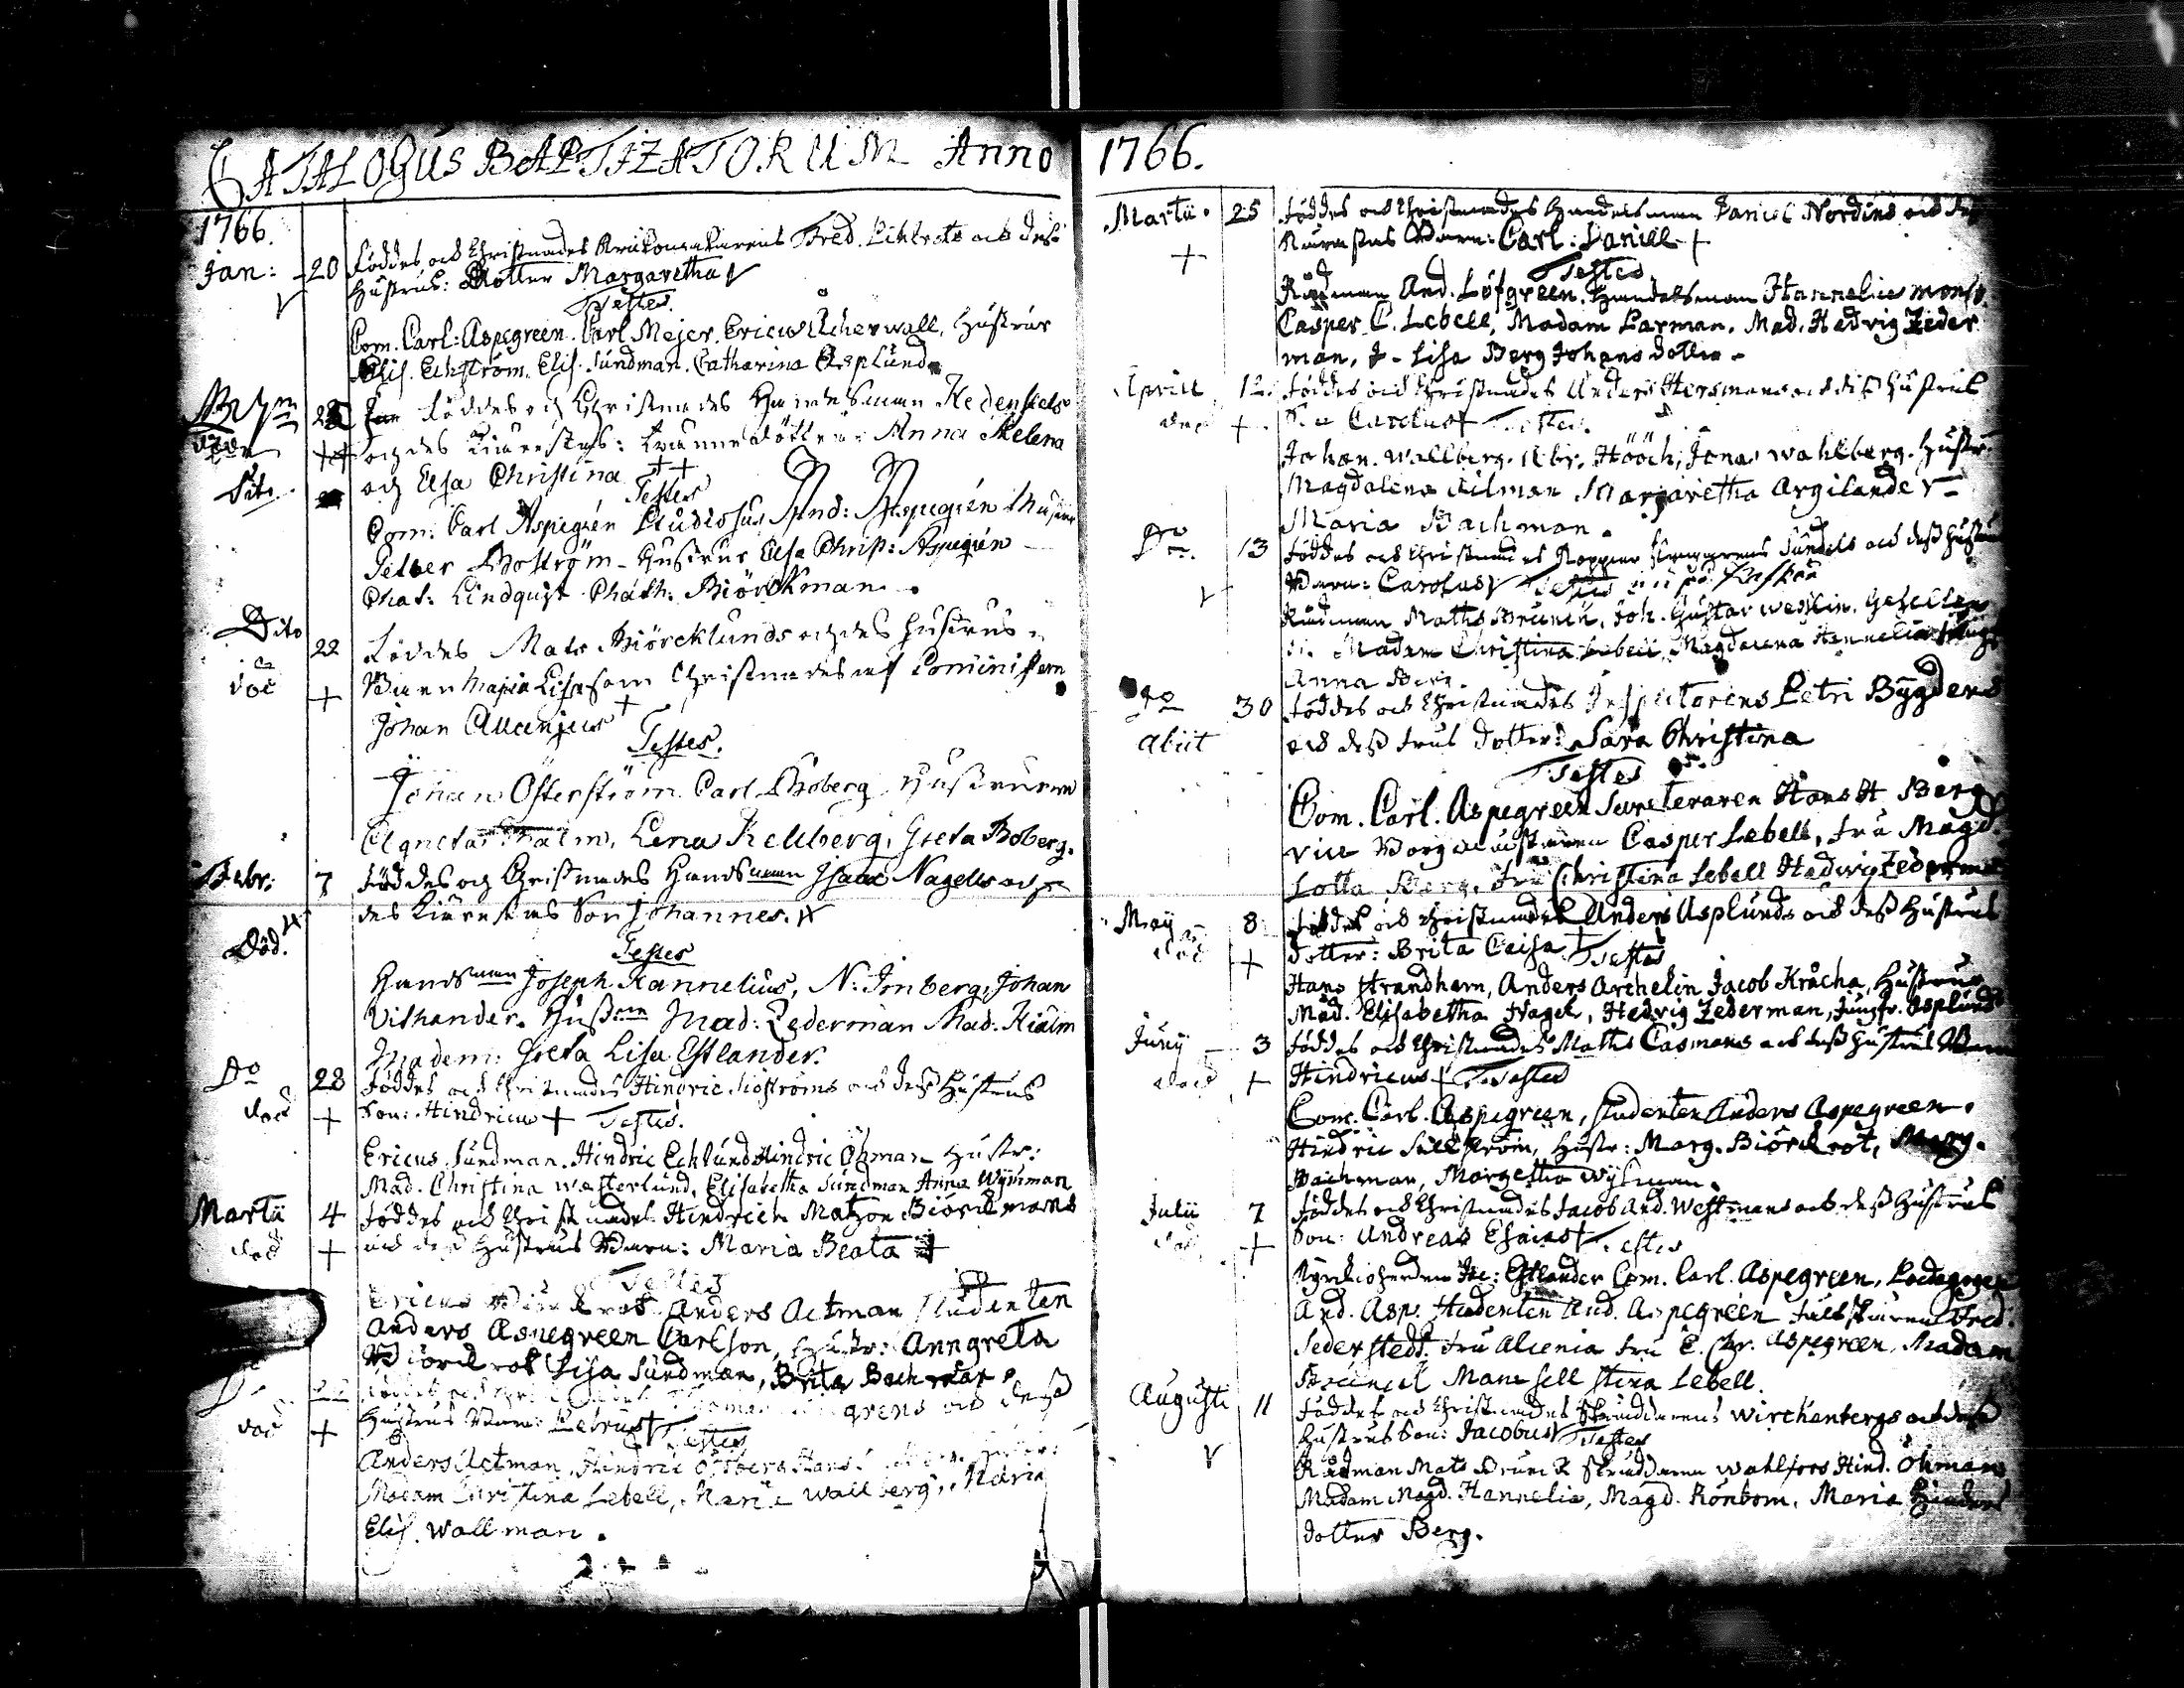 CATALOGUS BAPTIZATORUM Anno
1766.
Jan: 20 Föddes och Christnades Krukomakarens Fred. Liktrots och dess
Hustrus: Dotter Margaretha
Testes.
Com. Carl: Aspegreen. Carl Mejer. Ericus Åkerwall, Hustrur
Elis. Eckström. Elis. Sundman. Catharina Asplund.
Föddes och Christnades Handelsman Hedensiels
och des Kiärestas: Anna Helena
Dito och Elsa Christina ++
Testes
Com: Carl Aspegrén Studiosus And: Aspegrén
Petter Boström - Hustrur Elsa Christ: Aspegrén
Chat: Lindqvist Chath: Biörckman.
Dito 22 Föddes Mats Biörcklunds och des hustrus
död + Barn Maria Lisa som Christnades af Cominist.
Johan Alcenius +
Testes.
Johan Österström. Carl Boberg Hustrurna
Agneta Malm, Lena Kellberg, Greta Boberg.
Febr: 7 Föddes och Christnades Handsman Isaac Nagels och
des Kiärestas Son Johannes.
Död.
Testes
Handsman Joseph Hannelius, N: Imberg, Johan
Vithander. Hustr Mad: Zederman Mad. Hialm
Madem: Greta Lisa Estlander.
Do 28 Föddes och Christnades Hindric Siöströms och dess Hustrus
död + Son: Hindricus + Testes.
Ericus Sundman. Hindric Ecklund Hindric Öhman Hustr:
Mad. Christina Westerlund, Elisabetha Sundman Anna Wijnman
Martii 4 Föddes och Christnades Hindrich Matzon Biörckmans
död + och dess Hustrus Barn: Maria Beata +
Testes
Ericus Biörckrot Anders Actman Studenten
Anders Aspegreen Carlson, Hustr: Anngreta
Biörckrot Lisa Sundman, Brita Bachman
död + Hustrus Barn: Petrus + Testes
Anders Actman, Hindric Östberg Hans
Madam Christina Lebell, Maria Wallberg, Maria
Elis. Wallman.
1766.
Martii. 25 Föddes och Christnades Handelsman Daniel Nordins och des
+ Kiärestas Barn: Carl: Daniell +
Testes
Rådman And. Löfgreen. Handelsman Hannelius Mons.
Casper C. Lebell, Madam Larman. Mad. Hedvig Zeder
man, J. Lisa Berg Johans dotter
Aprill 12. Föddes och Christnades Anders Hersmans och des hustrus
död + Son Carolus + Testes.
Johan. Wallberg. Abr. Höök, Jonas Wahlberg. Hustr:
Magdalena Ailman Margaretha Argilander
Maria Bachman.
Do. 13 Föddes och Christnades Kopparslagarens Sundels och dess hustrus
Barn: Carolus Testes
Rådman Maths Brunén, Joh. Gustav Wesslin. Gesellen
Madam Christina Lebell, Magdalena Hannelia
Anna Berg.
Do 30 Föddes och Christnades Inspectorens Petri Bygdens
abiit och dess frus dotter: Sara Christina
Testes
Com. Carl. Aspegreen Secreteraren Hans H. Berg
vice Borgmästaren Casper Lebell, fru Magd.
Lotta Berg. fru Christina Lebell Hedwig Zederman
Maij 8 Föddes och Christnades Anders Asplunds och dess Hustrus
död + Dotter: Brita Caisa + Testes
Hans Strandhem, Anders Archelin Jacob Kråcka, Hustrur
Mad. Elisabetha Nagel, Hedvig Zederman, Jungfr. Asplund
Junij 3 Föddes och Christnades Maths Casmans och dess hustrus Barn
död + Hindricus + Testes
Com. Carl. Aspegreen, Studenten Anders Aspegreen.
Hindric Sillström, Hustr: Marg. Biörckrot, Marg.
Bachman, Margetha Wijkman.
Julii 7 Föddes och Christnades Jacob And. Westmans och dess Hustrus
+ Son: Andreas Esaias + Testes
Kyrckioherden Jac: Estlander Com. Carl. Aspegreen, Pædagogen
And. Asp. Studenten And. Aspegreen Fältskiären Fred.
Sederstedt. fru Alcenia fru E. Chr. Aspegreen, Madam
Brunell Mamsell Stina Lebell.
Augusti 11 Föddes och Christnades Skräddarens Wirckenbergs och dess
Hustrus Son: Jacobus Testes
Rådman Mats Brunn Skräddaren Wahlfors Hind. Öhman
Madam Magd. Hannelia, Magd. Rönbom, Maria
dotter Berg.